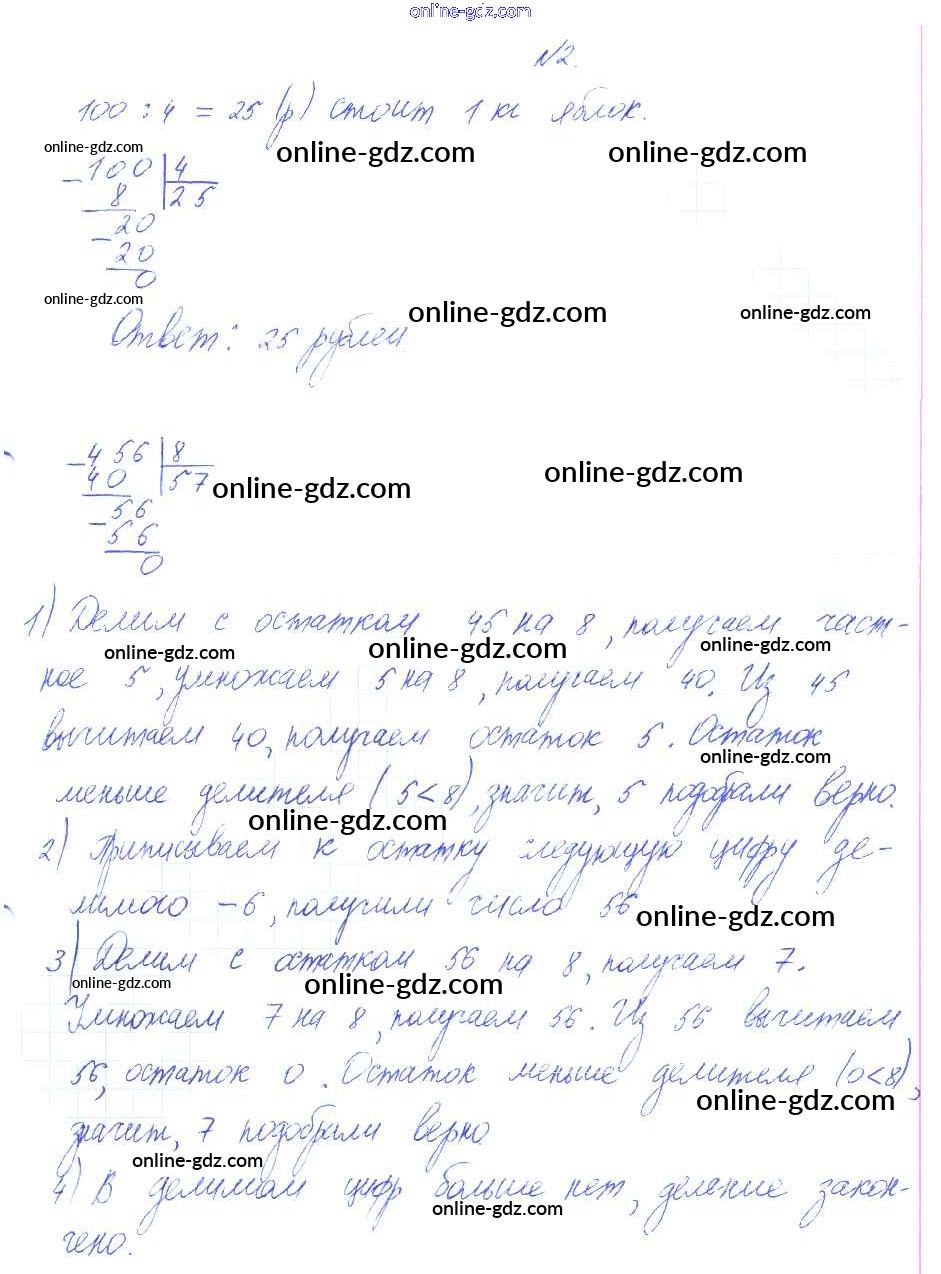 online-gdz.com
№2.
100 : 4 = 25 (р) стоит 1 кг яблок.
online-gdz.com online-gdz.com online-gdz.com
- 100 | 4
8 | 25
- 20
20
0
online-gdz.com online-gdz.com online-gdz.com
Ответ: 25 рублей
- 456 | 8
40 | 57
online-gdz.com online-gdz.com
- 56
56
0
1) Делим с остатком 45 на 8, получаем част-
online-gdz.com online-gdz.com online-gdz.com
ное 5, умножаем 5 на 8, получаем 40. Из 45
вычитаем 40, получаем остаток 5. Остаток
online-gdz.com
меньше делителя (5<8), значит, 5 подобрали верно.
online-gdz.com
2) Приписываем к остатку следующую цифру де-
лимого - 6, получили число 56
online-gdz.com
3) Делим с остатком 56 на 8, получаем 7.
online-gdz.com online-gdz.com
Умножаем 7 на 8, получаем 56. Из 56 вычитаем
56, остаток 0. Остаток меньше делителя (0<8),
online-gdz.com
значит, 7 подобрали верно
online-gdz.com
4) В делимом цифр больше нет, деление закон-
online-gdz.com
чено.